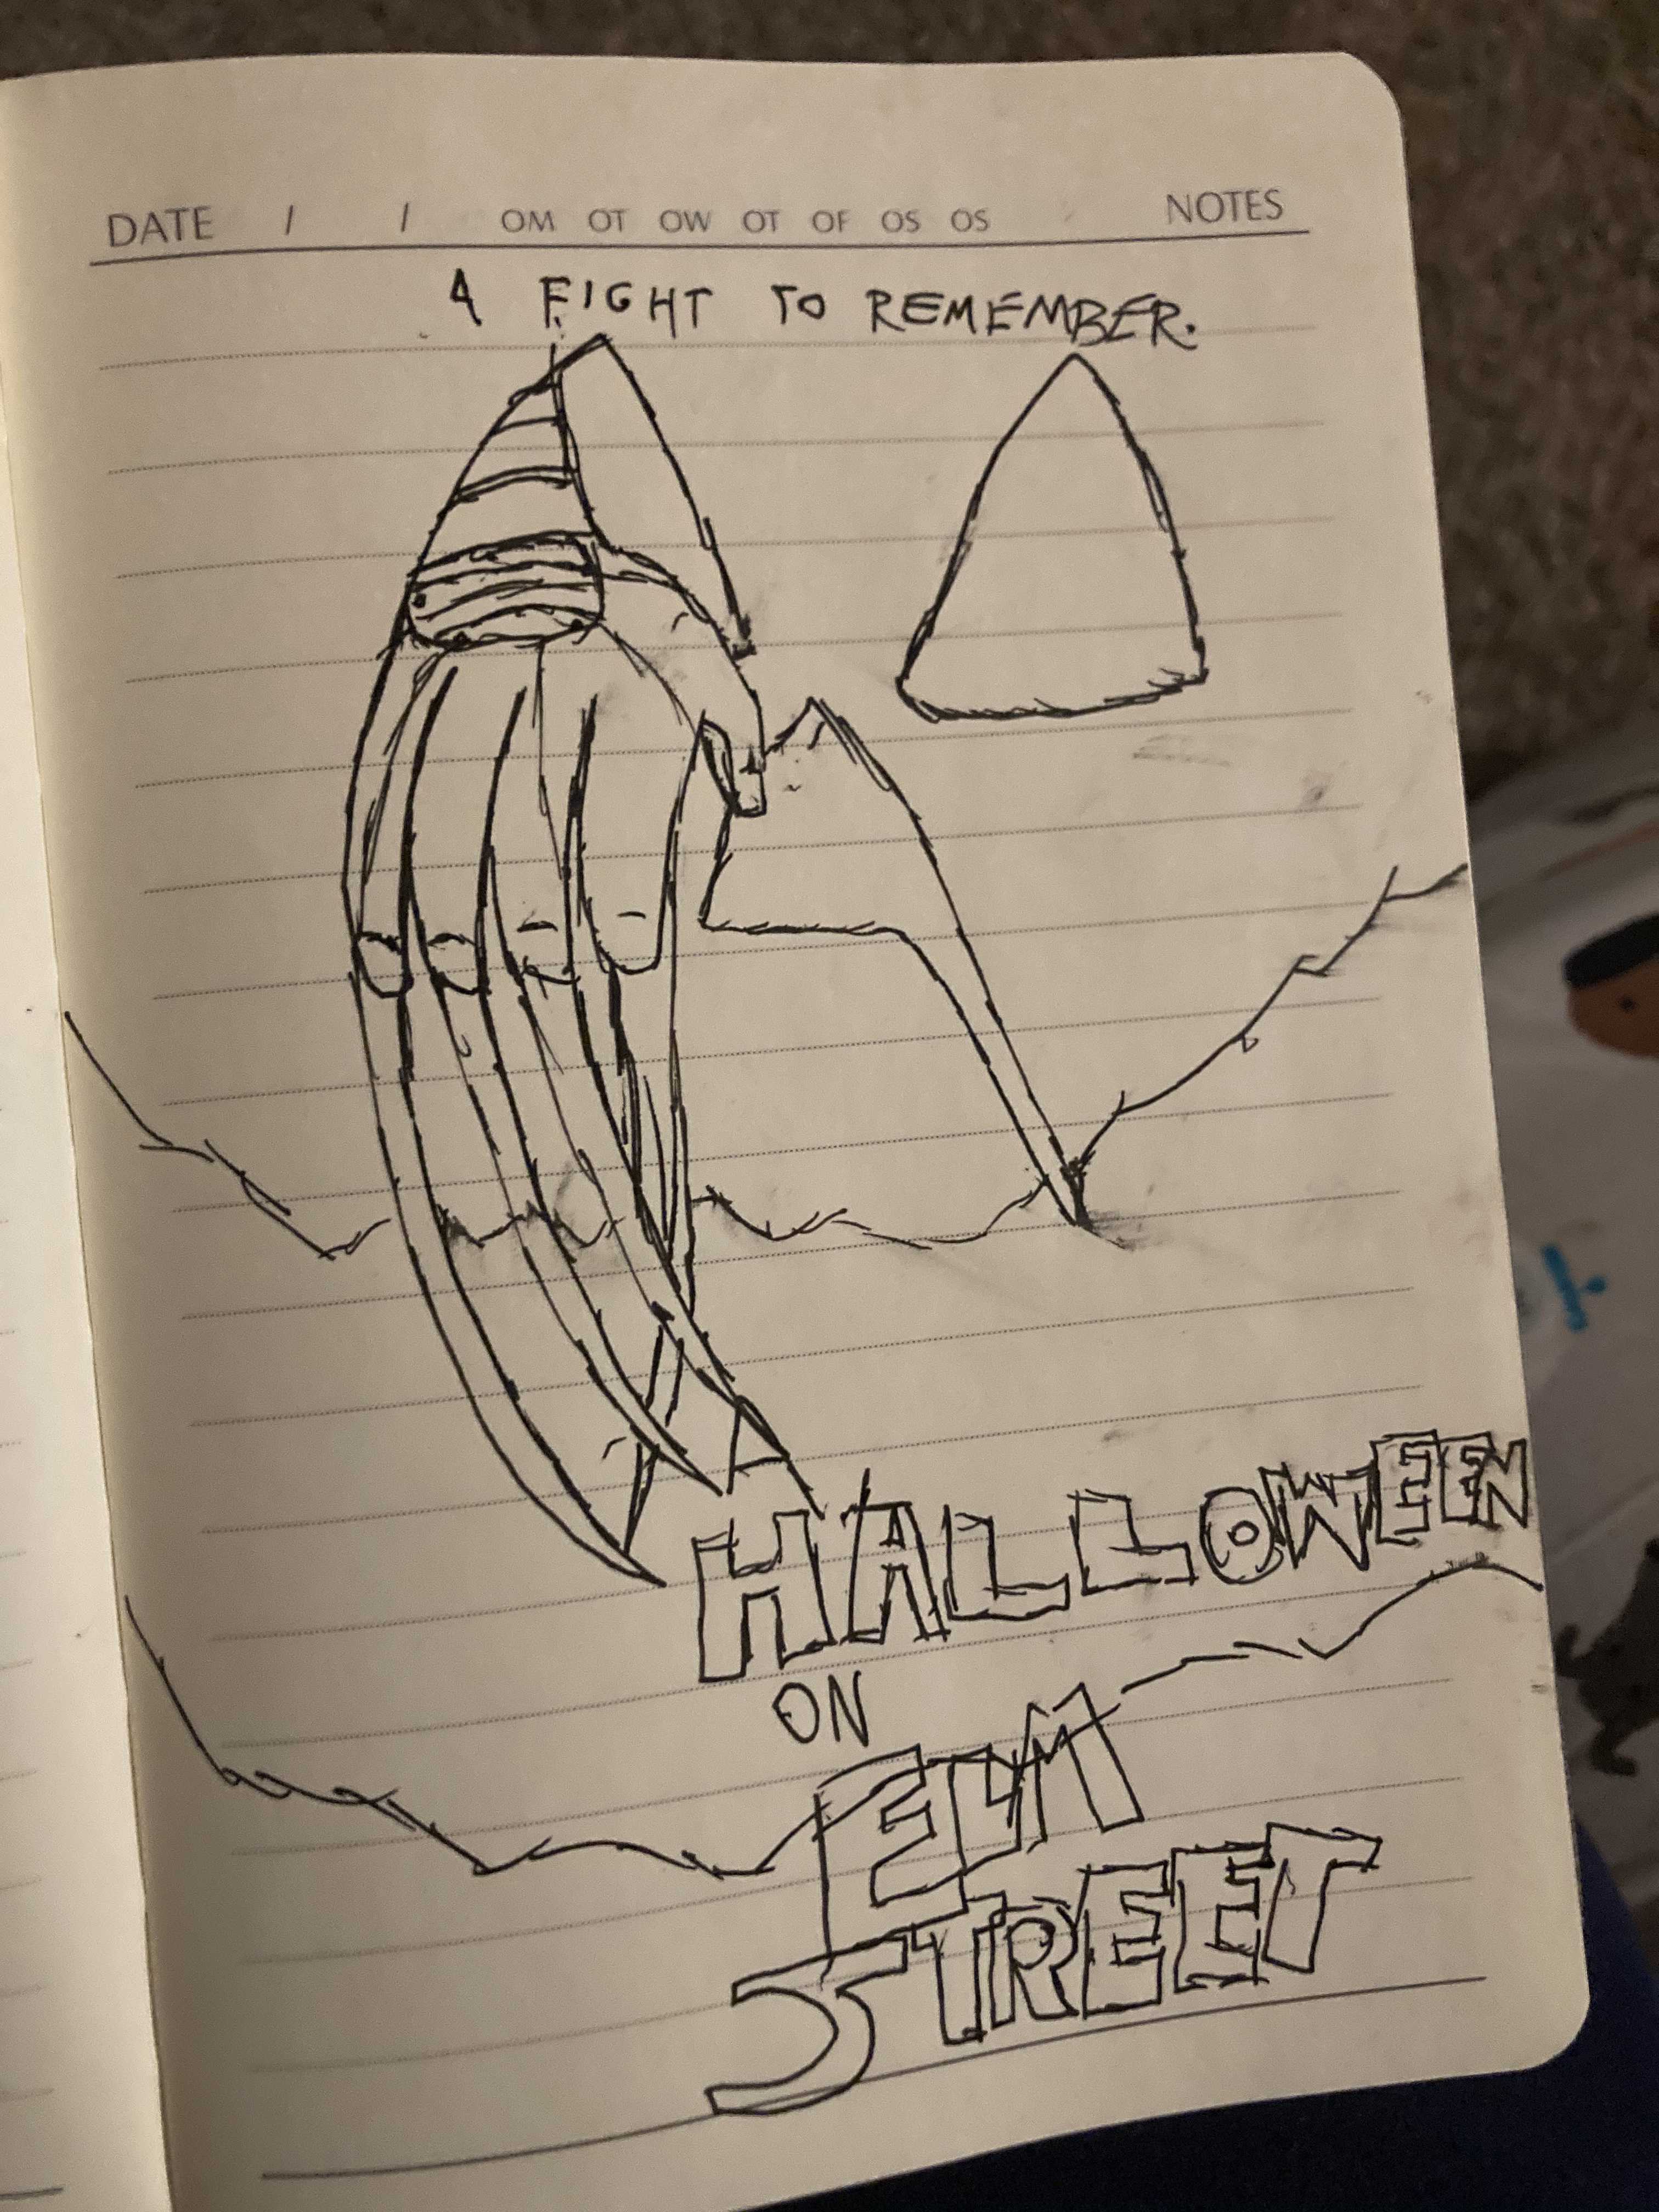 DATE / / OM OT OW OT OF OS OS NOTES
A FIGHT TO REMEMBER.
HALLOWEEN
ON
ELM
STREET